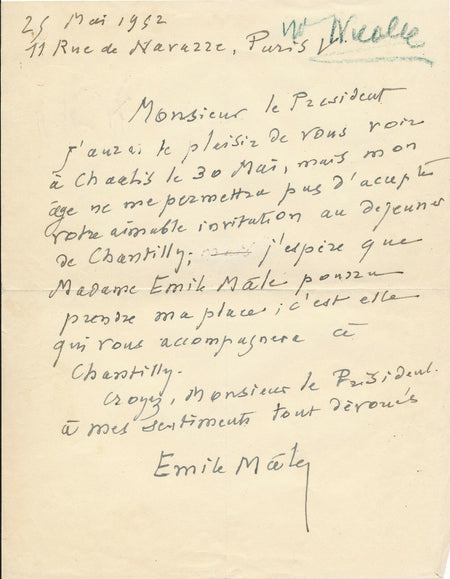 25 Mai 1952
11 Rue de Navarre, Paris V
Mr Nicolle
Monsieur le President
J'aurai le plaisir de vous voir
à Chaalis le 30 Mai, mais mon
âge ne me permettra pas d'accepter
votre aimable invitation au dejeuner
de Chantilly; mais j'espère que
Madame Emile Mâle pourra
prendre ma place; c'est elle
qui vous accompagnera à
Chantilly.
Croyez, Monsieur le Président.
à mes sentiments tout dévoués
Emile Mâle